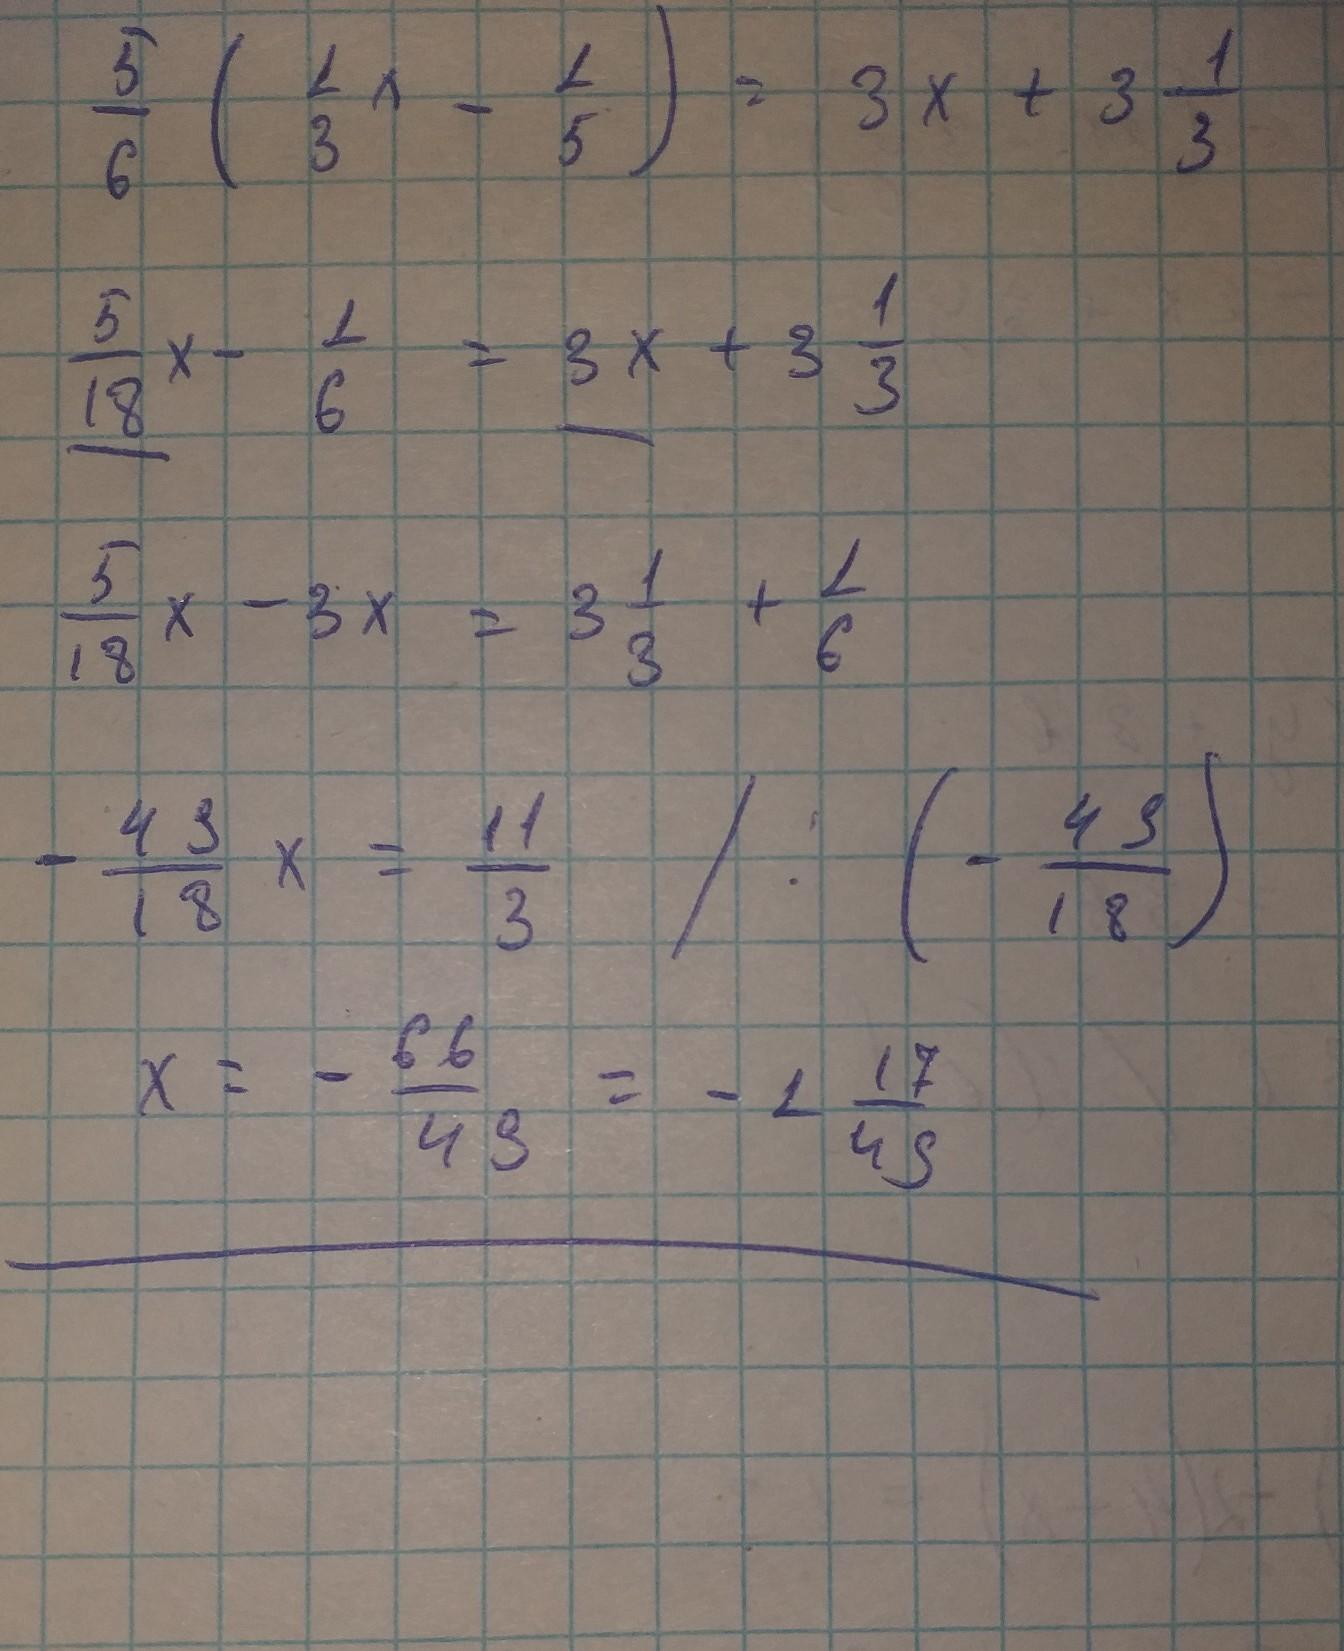 5/6 (1/3 x - 1/5) = 3x + 3 1/3
5/18 x - 1/6 = 3x + 3 1/3
5/18 x - 3x = 3 1/3 + 1/6
- 49/18 x = 11/3 / : (- 49/18)
x = - 66/49 = - 1 17/49